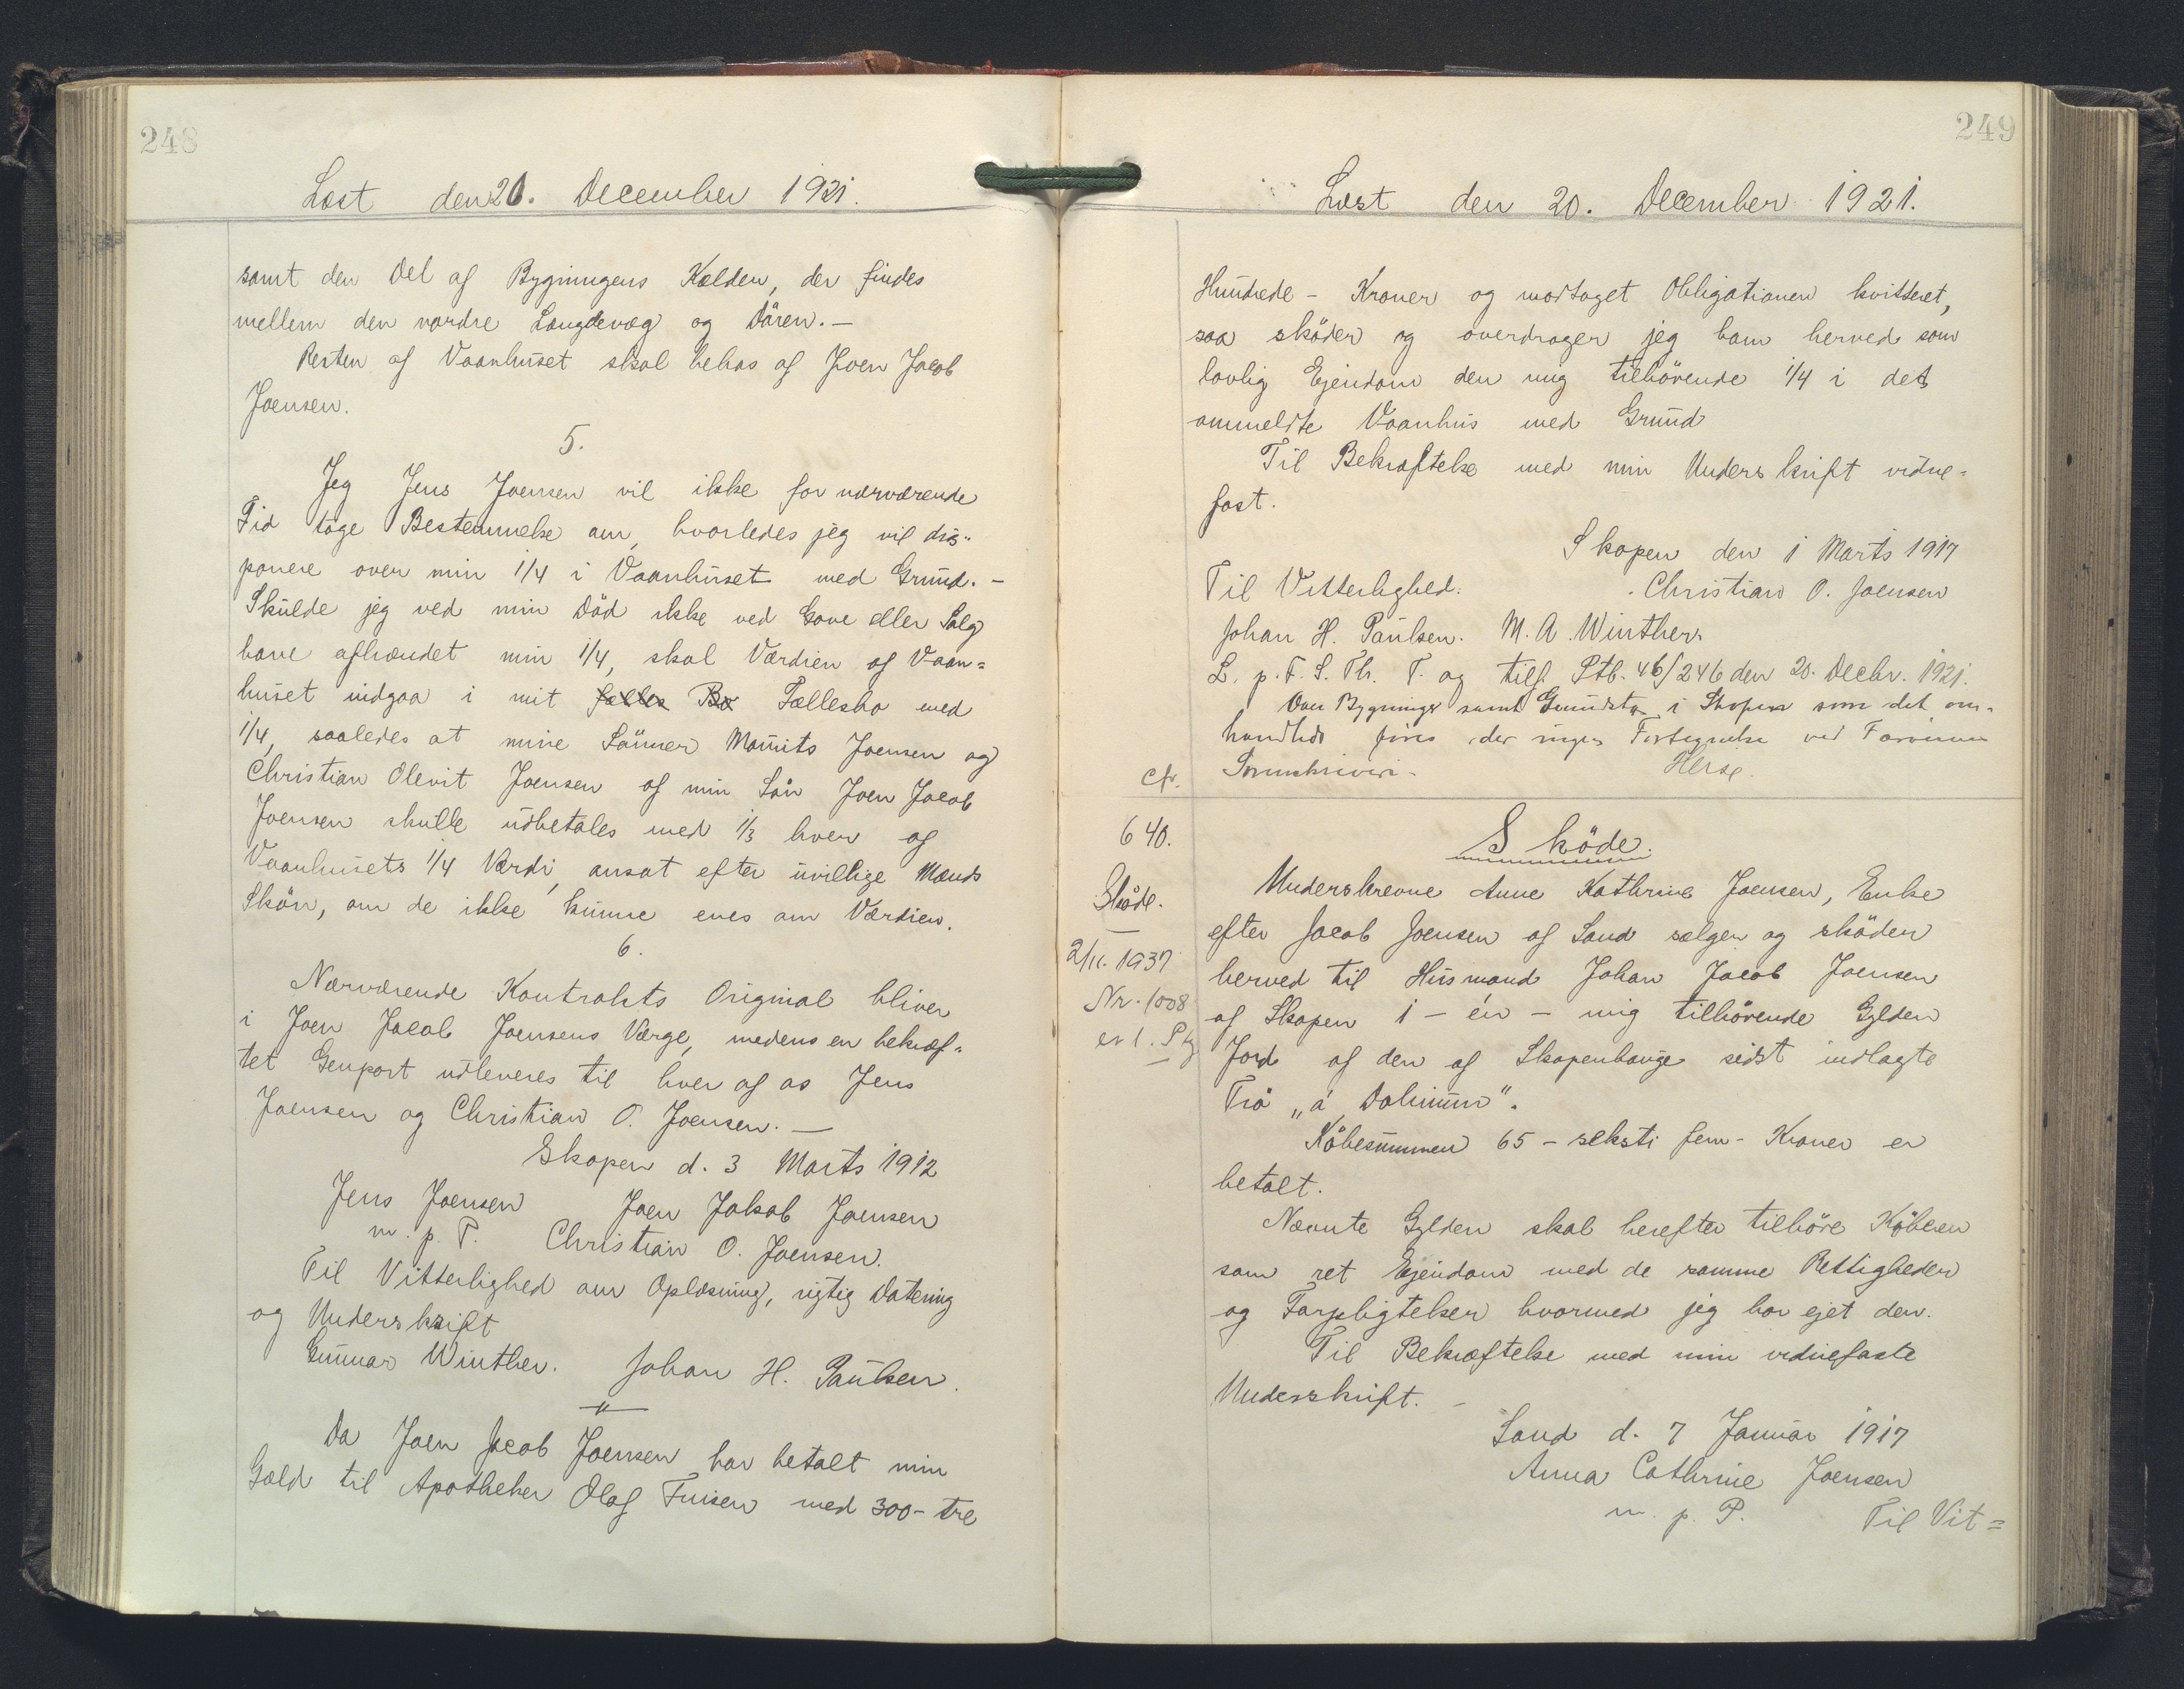 248
Læst den 20. December 1921.
samt den Del af Bygningens Kælder, der findes
mellem den nordre Længdevæg og Dören.—
Resten af Vaanhuset skal behas af Joen Jacob
Joensen.
5.
Jeg Jens Joensen vil ikke for nærværende
Tid tage Bestemmelse om, hvorledes jeg vil dis-
ponere over min 1/4 i Vaanhuset med Grund.—
Skulde jeg ved min Död ikke ved Gave eller Salg
have afhændet min 1/4, skal Værdien af Vaan-
huset indgaa i mit fælles Bo Fællesbo med
1/4, saaledes at mine Sönner Mourits Joensen og
Christian Olevit Joensen af min Sön Joen Jacob
Joensen skulle udbetales med 1/3 hver af
Vaanhusets 1/4 Værdi, ansat efter uvillige Mænds
Skön, om de ikke kunne enes om Værdien.
6.
Nærværende Kontrakts Original bliver
i Joen Jacob Joensens Værge, medens en bekræf-
tet Genpart udleveres til hver af os Jens
Joensen og Christian O. Joensen.—
Skopen d. 3 Marts 1912
Jens Joensen Joen Jakob Joensen
m. p. P. Christian O. Joensen.
Til Vitterlighed om Oplæsning, rigtig Datering
og Underskrift
Gunnar Winther. Johan H. Paulsen.
Da Joen Jacob Joensen har betalt min
Gæld til Apotheker Olaf Finsen med 300 - tre
249
Læst den 20. December 1921.
Hundrede - Kroner og modtaget Obligationen kvitteret,
saa sköder og overdrager jeg ham herved som
lovlig Ejendom den mig tilhörende 1/4 i det
ommeldte Vaanhus med Grund
Til Bekræftelse med min Underskrift vidne-
fast.
Skopen den 1 Marts 1917
Til Vitterlighed. Christian O. Joensen
Johan H. Paulsen. M. A. Winther.
L. p. F. S. Th. T. og tilf. Ptb. 46/246 den 20. Decbr. 1921.
Over Bygninger samt Grundstk. i Skopen som det om-
handlede föres der ingen Fortegnelse ved Færöernes
cfr. Sorenskriveri.
640. Sköde.
Sköde. Underskrevne Anne Kathrine Joensen, Enke
efter Jacob Joensen af Sand sælger og sköder
2/11. 1937 herved til Husmand Johan Jacob Joensen
Nr. 1008 af Skopen 1 - én - mig tilhörende Gylden
Jord af den af Skopenhauge sidst indlagte
Trö „á Dalinum“.
Köbesummen 65 - seksti fem - Kroner er
betalt.
Nævnte Gylden skal herefter tilhöre Köberen
som ret Ejendom med de samme Rettigheder
og Forpligtelser hvormed jeg har ejet den.
Til Bekræftelse med min vidnefaste
Underskrift.
Sand d. 7 Januar 1917
Anna Cathrine Joensen
m. p. P. Til Vit=